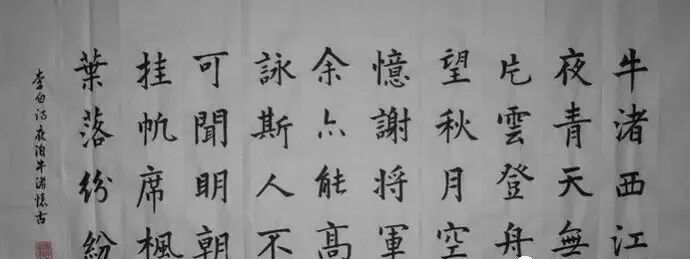 牛渚西江
夜青天無
片雲登舟
望秋月空
憶謝將軍
余亦能高
詠斯人不
可聞明朝
挂帆席楓
葉落紛紛
李白詩夜泊牛渚懷古